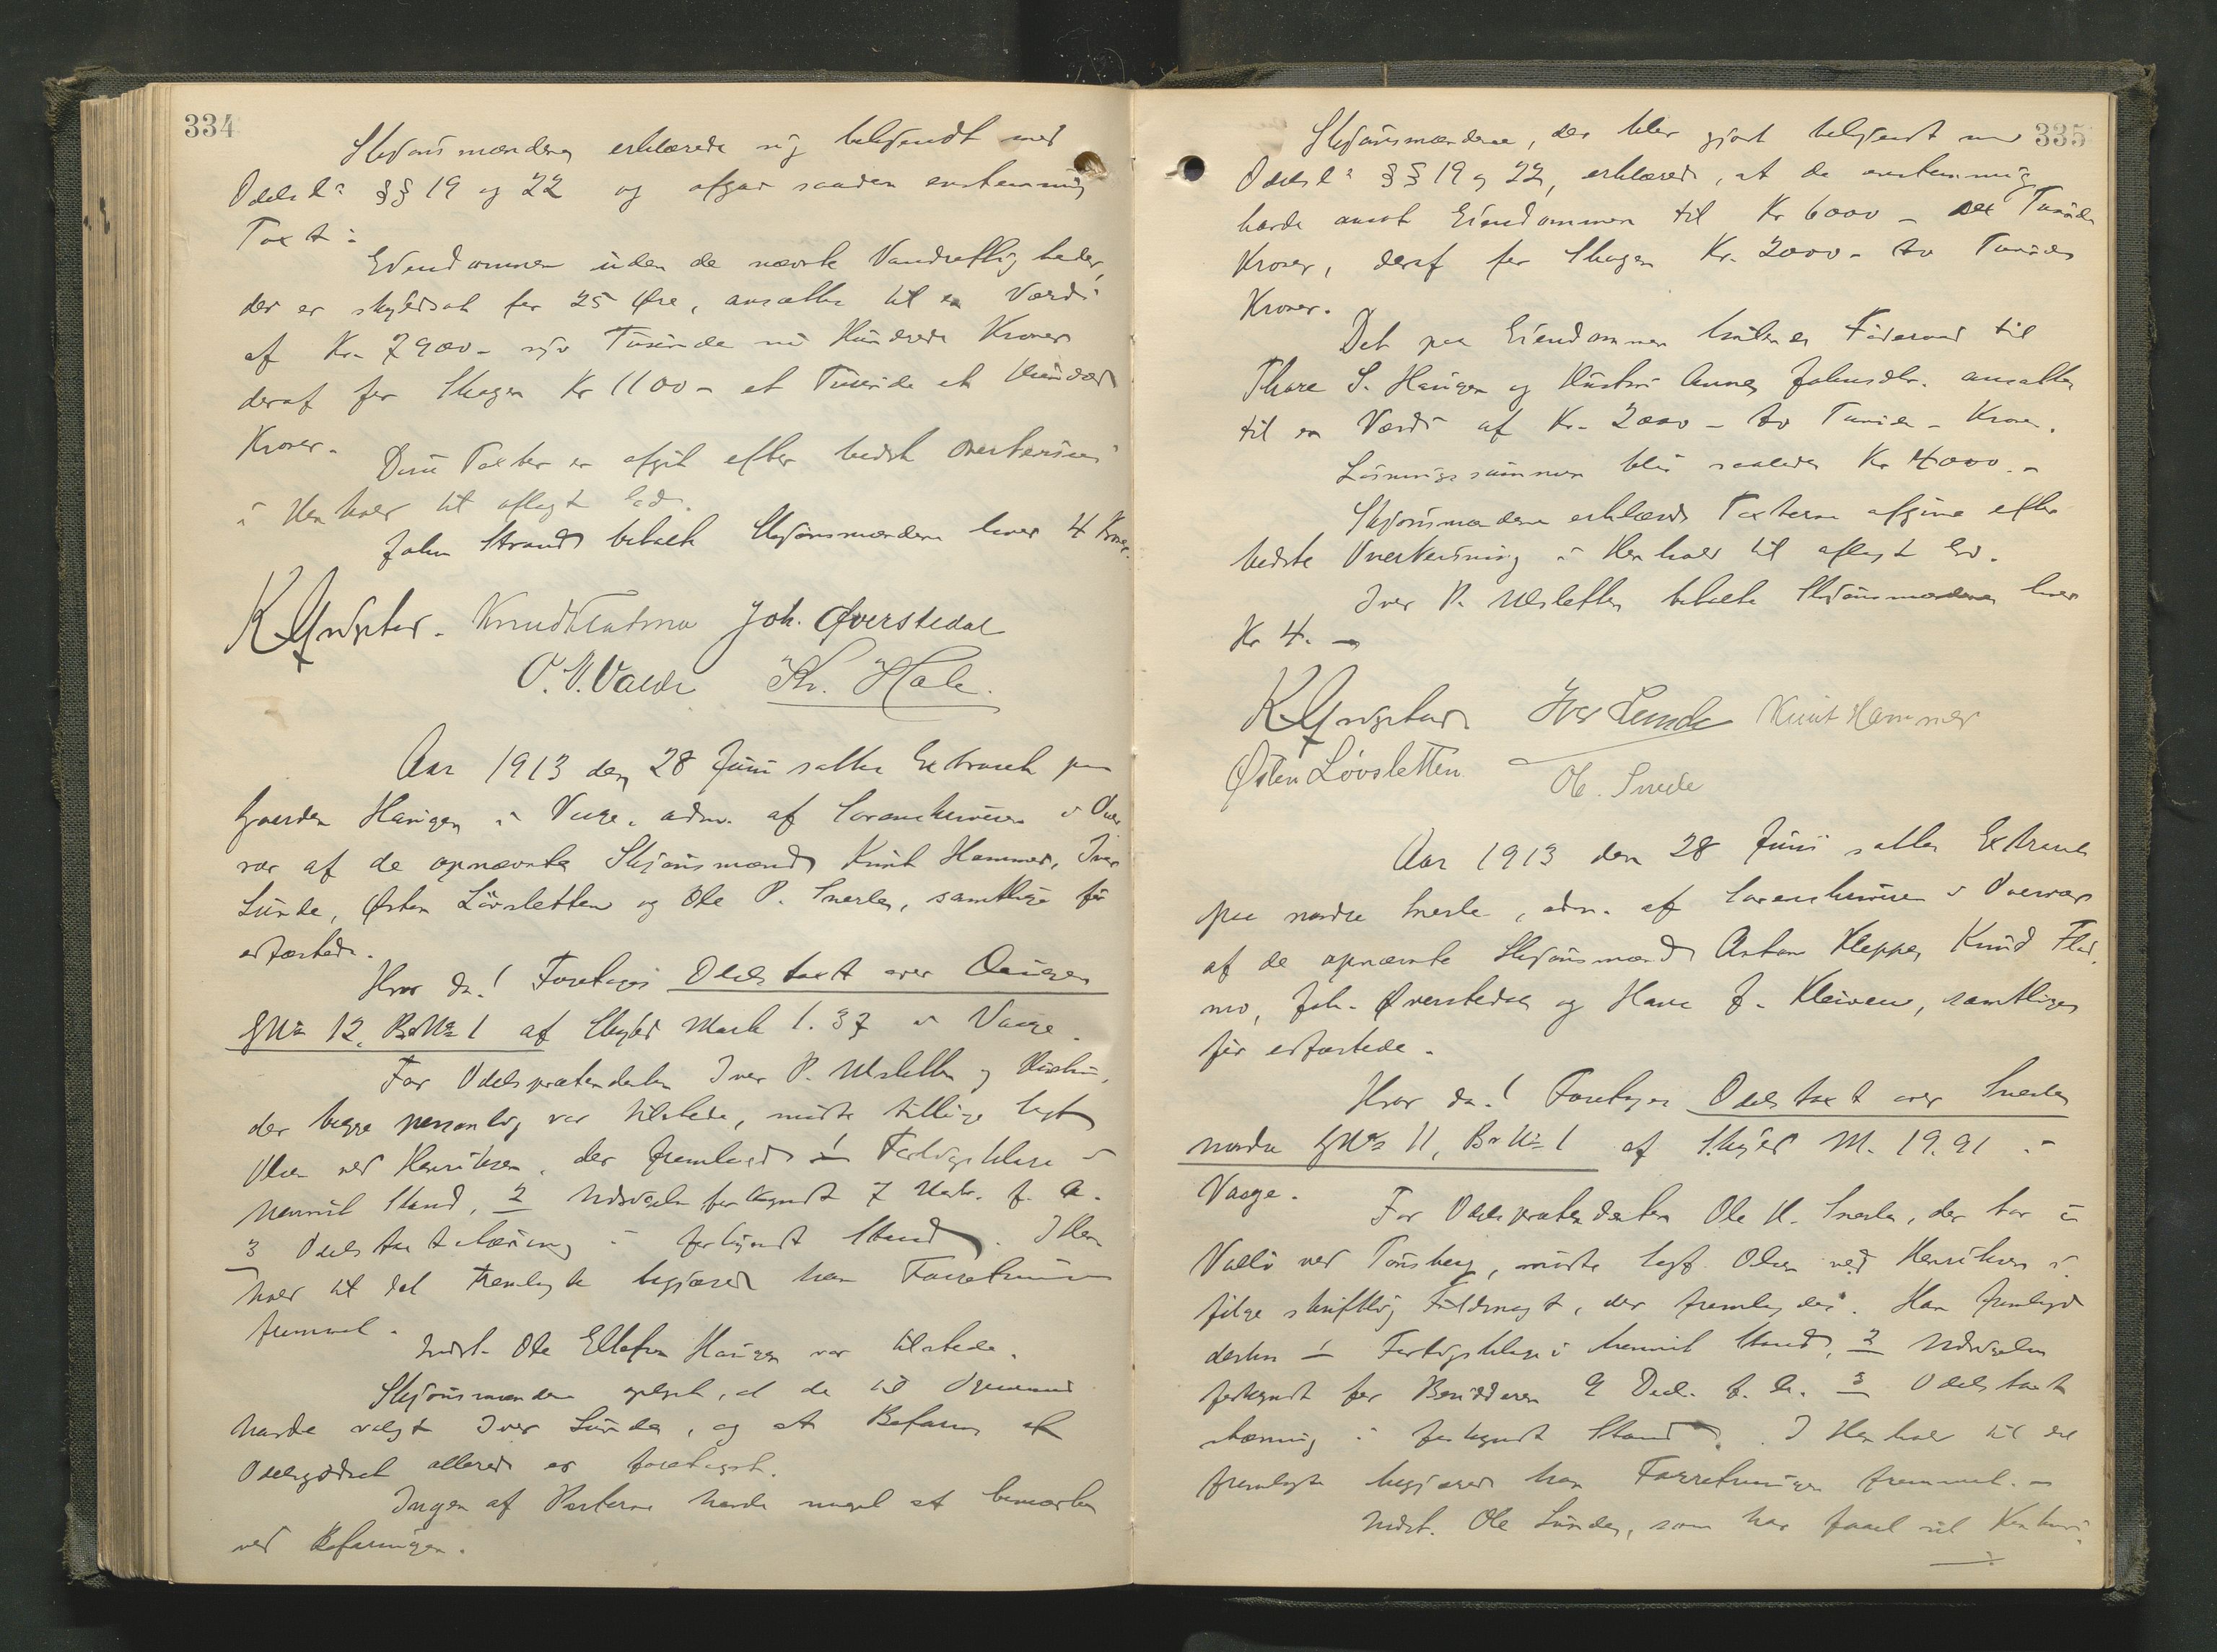 334
Skjønsmændene erklærede sig bekjendt med
Odelsl.s §§ 19 og 22 og afgav saadan enstemmig
Taxt:
Eiendommen uden de nævnte Vandrettigheder,
der er skyldsat for 25 Øre, ansættes til en Værdi
af Kr. 7900 - syv Tusinde ni Hundrede Kroner
deraf for Skogen Kr 1100 - et Tusinde et Hundrede
Kroner.
Disse Taxter er afgit efter bedste Overbevisn.
i Henhold til aflagt Ed.
John Strand betalte Skjønsmændene hver 4 Kroner.
Knud Flatmo Joh. Øverstedal
O. V. Kr. Hole.
Aar 1913 den 28 Juni sattes Extraret paa
Gaarden Haugen i Vaage, adm. af Sorenskriveren i Over
vær af de opnævnte Skjønsmænd Knut Hammer, Iver
Sunde, Østen Løvsletten og Ole P. Snerle, samtlige før
edfæstede.
Hvor da! Foretoges Odelstaxt over Haugen
GNo 12, BrNo 1 af Skyld Mark 1.37 i Vaage.
For Odelsprætendenten Iver P. Ulsletten og Hustru,
der begge personlig var tilstede, mødte tillige Sagf.
Olsen ved Henriksen, der fremlagde 1 Forligsklage i
hennist Stand, 2 Udsigelse forkyndt 7 f. A.
3 Odelstaxtstævning i forkyndt Stand. I Hen
hold til det fremlagte begjæred han Forretningen
fremmet.
Indst. Ole Ellefsen Haugen var tilstede.
Skjønsmændene oplyste, at de til Formand
havde valgt Iver Sunde, og at Befaring af
Odelsgodset allerede er foretaget.
Ingen af Parterne havde noget at bemærke
ved Befaringen.
335
Skjønsmændene, der blev gjort bekjendt med
Odelsl.s §§ 19 og 22, erklæred, at de enstemmig
havde ansat Eiendommen til Kr 6000 - sex Tusinde
Kroner, deraf for Skogen Kr. 2000 - to Tusinde
Kroner.
Det paa Eiendommen hvilende Føderaad til
Thore S. Haugen og Hustru Anne Johnsdtr. ansattes
til en Værdi af Kr. 2000 - to Tusinde - Kroner.
Løsningssummen blir saaledes Kr 4000.-
Skjønsmændene erklæred Taxterne afgivne efter
bedste Overbevisning i Henhold til aflagt Ed.
Iver P. Ulsletten betalte Skjønsmændene hver
Kr 4. -
Iver Sunde Knut Hammer
Østen Løvsletten Ole. Snerle
Aar 1913 den 28 Juni sattes Extraret
paa nordre Snerle, adm. af Sorenskriveren i Overvær
af de opnævnte Skjønsmænd Anton Kleppe, Knud Flat
mo, Joh. Øverstedal og Hans J. Kleiven, samtlige
før edfæstede.
Hvor da! Foretoges Odelstaxt over Snerle
nordre GNo 11, BrNo 1 af Skyld M. 19.91 i
Vaage.
For Odelsprætendenten Ole H. Snerle, der bor i
Vallø ved Tønsberg, mødte Sagf. Olsen ved Henriksen i
følge skriftlig Fuldmagt, der fremlagdes. Han fremlagde
desuden 1 Forligsklage i hennist Stand, 2 Udsigelse
forkyndt for Besidderen 9 Decb. f. A. 3 Odelstaxt
stævning i forkyndt Stand. I Henhold til det
fremlagte begjæred han Forretningen fremmet. -
Indst. Ole Sunde, som har faaet sit